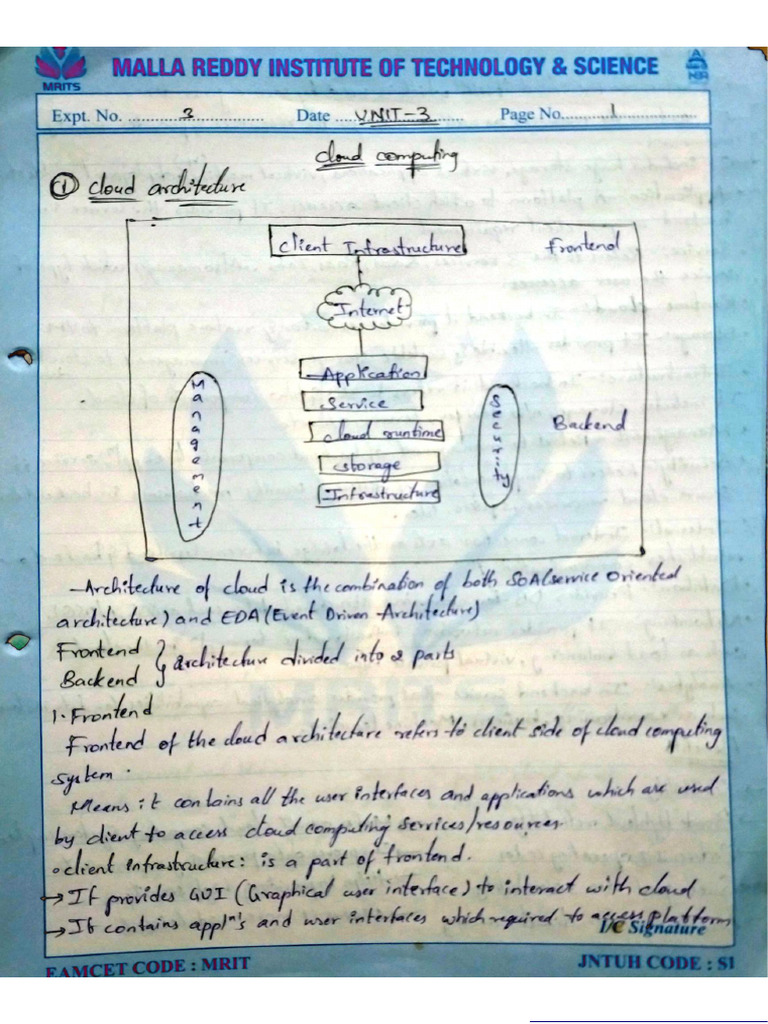 MRITS
MALLA REDDY INSTITUTE OF TECHNOLOGY & SCIENCE
Expt. No. 3 Date UNIT-3 Page No. 1
cloud computing
① cloud architecture
Client Infrastructure
Frontend
Internet
Application
Service
cloud runtime
storage
Infrastructure
Management
Security
Backend
Architecture of cloud is the combination of both SOA(service Oriented
architecture) and EDA (Event Driven Architecture)
Frontend
Backend } architecture divided into 2 parts
1. Frontend
Frontend of the cloud architecture refers to client side of cloud computing
system.
Means: it contains all the user interfaces and applications which are used
by client to access cloud computing services/resources
o client infrastructure: is a part of frontend.
→ It provides GUI (Graphical user interface) to interact with cloud
→ It contains appln's and user interfaces which required to access platform
I/C Signature
MRIT
EAMCET CODE : MRIT
JNTUH CODE : S1